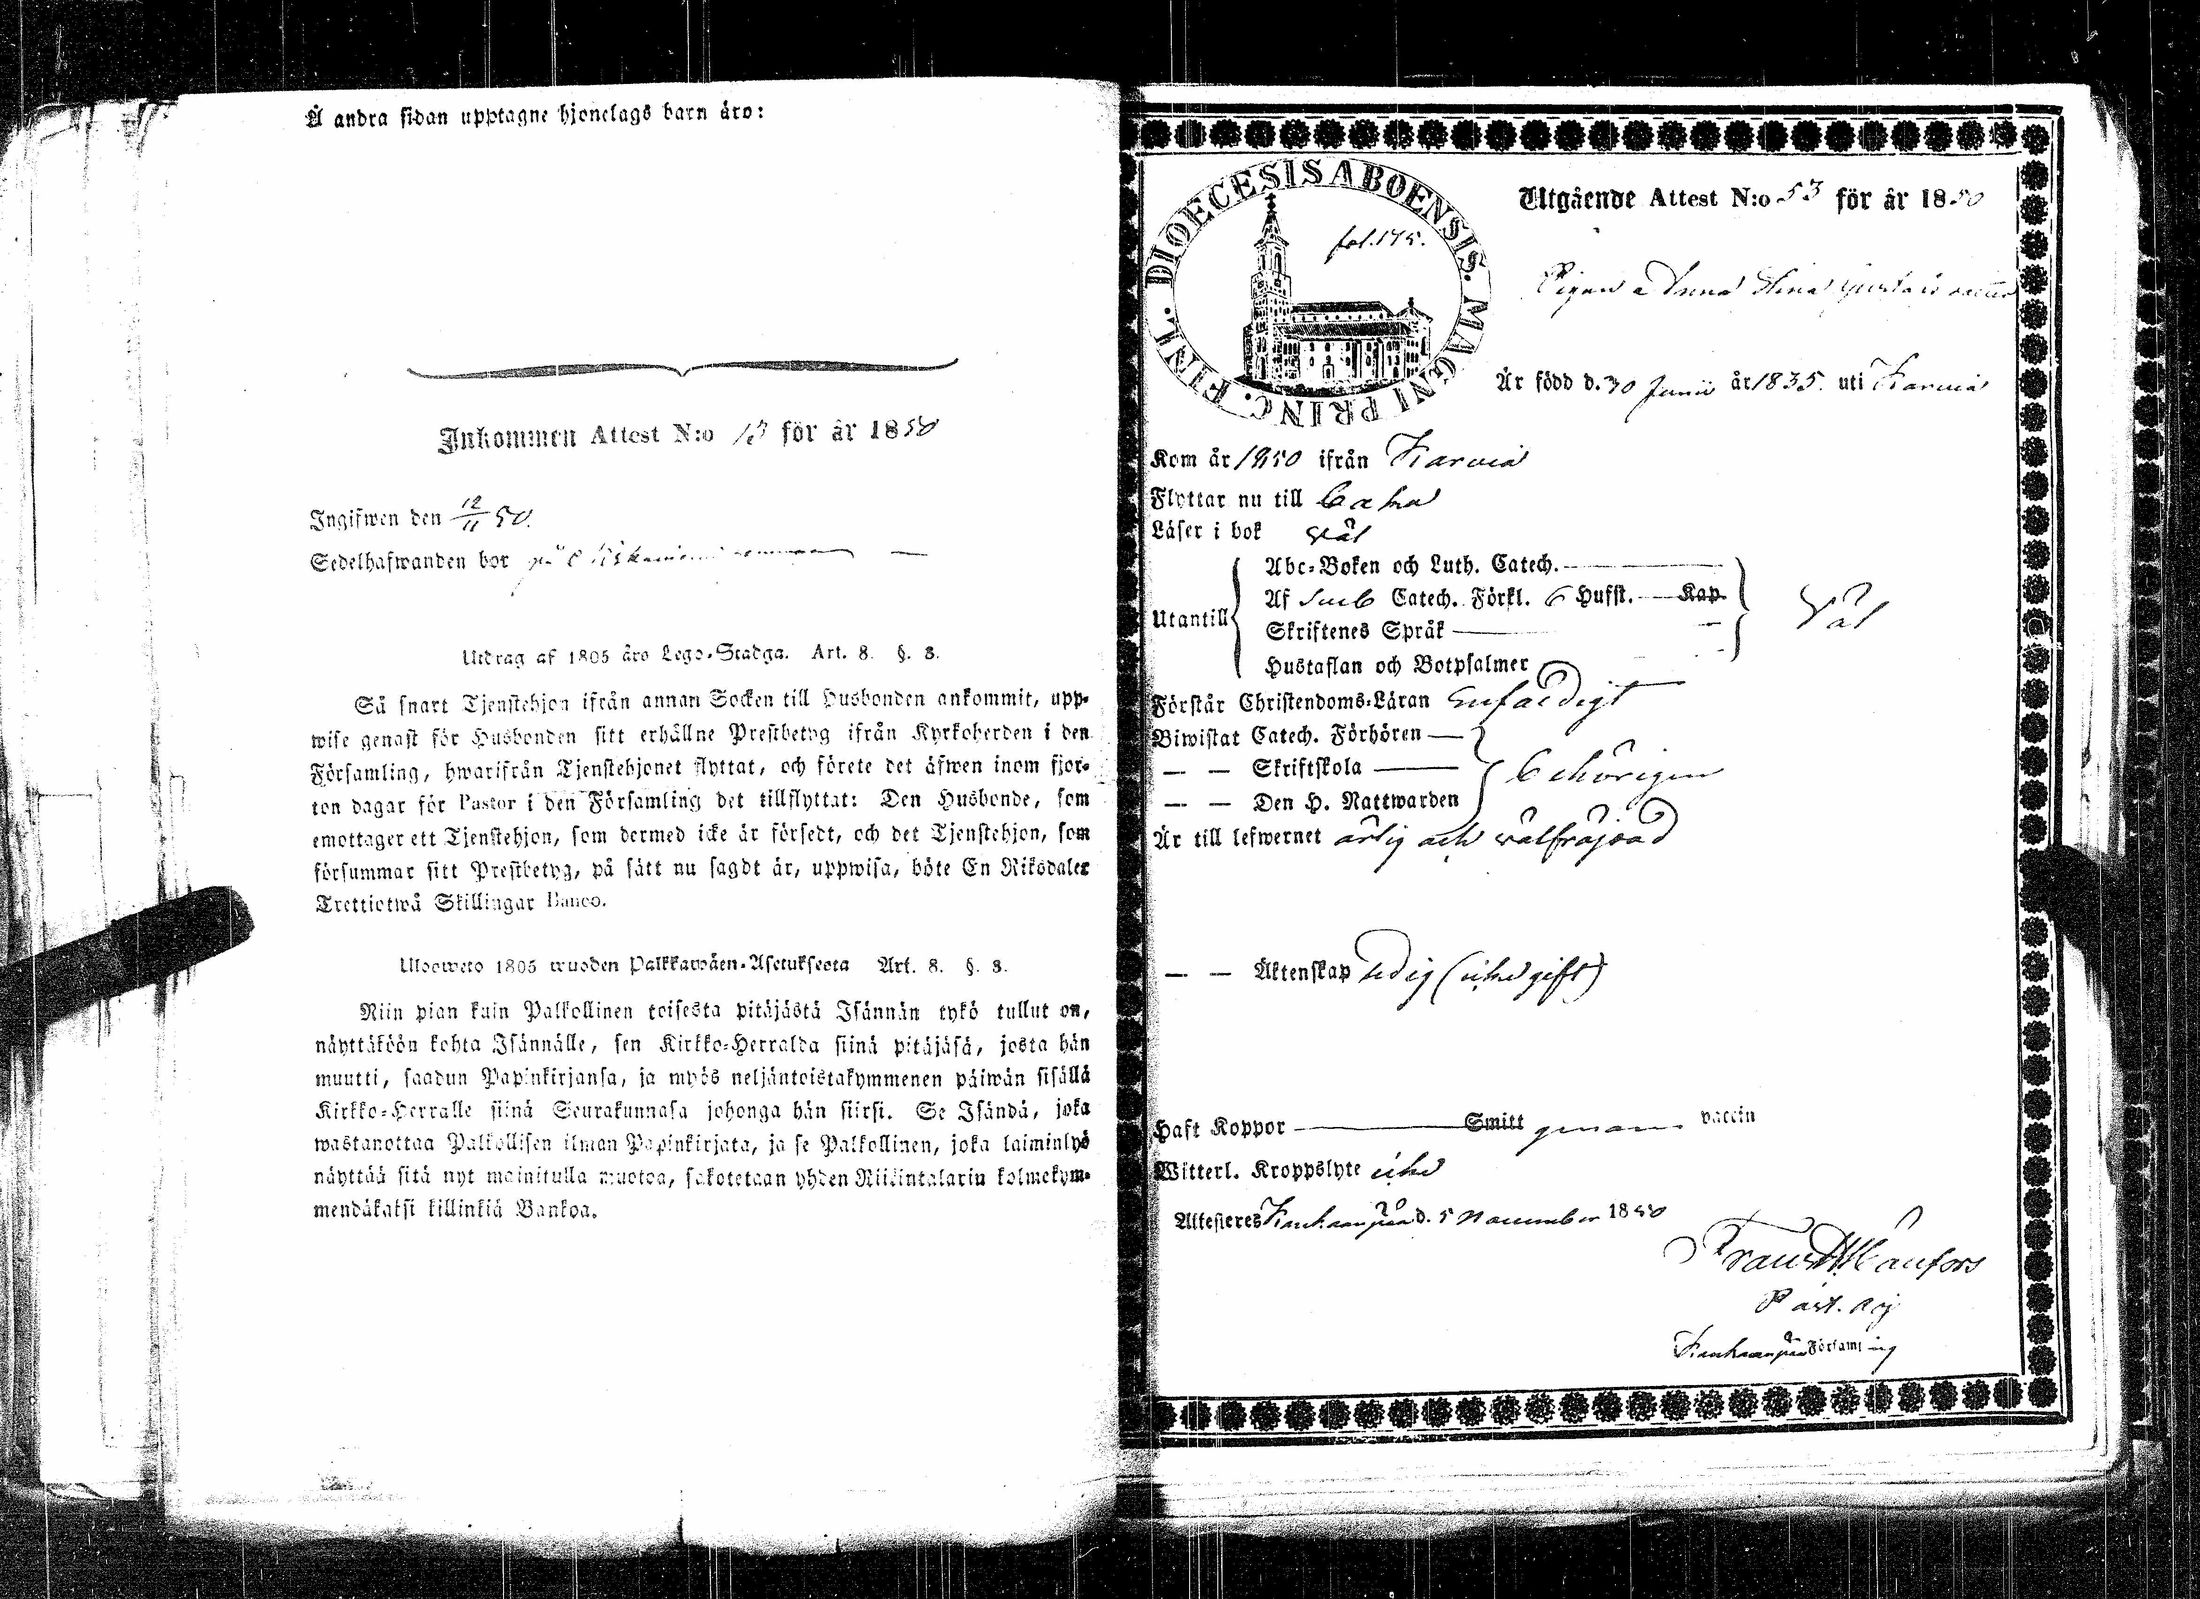 Å andra sidan upptagne hjonelags barn äro:
Inkommen Attest N:o 13 för år 1850
Ingifwen den 12/11 50.
Sedelhafwanden bor på
Utdrag af 1805 års Lego-Stadga. Art. 8. §. 3.
Så snart Tjenstehjon ifrån annan Socken till Husbonden ankommit, upp-
wise genast för Husbonden sitt erhållne Prestbetyg ifrån Kyrkoherden i den
Församling, hwarifrån Tjenstehjonet flyttat, och förete det äfwen inom fjor-
ton dagar för Pastor i den Församling det tillflyttat: Den Husbonde, som
emottager ett Tjenstehjon, som dermed icke är försedt, och det Tjenstehjon, som
försummar sitt Prestbetyg, på sätt nu sagdt är, uppwisa, böte En Riksdaler
Trettiotwå Skillingar Banco.
Ulosweto 1805 wuoden Palkkawäen-Asetuksesta Art. 8. §. 3.
Niin pian kuin Palkollinen toisesta pitäjästä Isännän tykö tullut on,
näyttäköön kohta Isännälle, sen Kirkko-Herralda siinä pitäjäsä, josta hän
muutti, saadun Papinkirjansa, ja myös neljäntoistakymmenen päiwän sisällä
Kirkko-Herralle siinä Seurakunnasa johonga hän siirsi. Se Isändä, joka
wastanottaa Palkollisen ilman Papinkirjata, ja se Palkollinen, joka laiminlyö
näyttää sitä nyt mainitulla muotoa, sakotetaan yhden Riikintalarin kolmekym-
mendäkaksi killinkiä Bankoa.
DIOECESIS ABOENSIS. MAGNI PRINC. FINL.
fol. 175.
Utgående Attest N:o 53 för år 1850
Pigan Anna Stina Gustafsdotter
Är född d. 30 Junii år 1835. uti Karvia
Kom år 1850 ifrån Karvia
Flyttar nu till
Läser i bok väl
Utantill
Abc-Boken och Luth. Catech.
Af Sveb Catech. Förkl. 6 Hufst. Kap
Skriftenes Språk
Hustaflan och Botpsalmer
Väl
Förstår Christendoms-Läran Enfaldigt
Biwistat Catech. Förhören
— — Skriftskola
— — Den H. Nattwarden
behörigen
Är till lefwernet ärlig och välfräjdad
— — Äktenskap ledig (icke gift)
Haft Koppor Smitt genom vaccin
Witterl. Kroppslyte icke
Attesteres Kankaanpää d. 5 November 1850
Past. Adj
Kankaanpää Församling